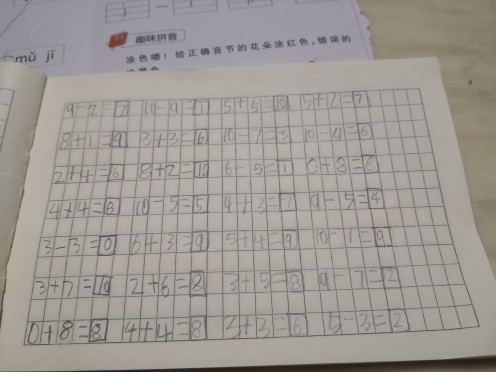 mǔ jī
趣味拼音
涂色喽！给正确音节的花朵涂红色，错误的
涂黄色
9-2=7 10-9=1 5+5=10 5+2=7
8+1=9 3+3=6 10-7=3 10-4=6
2+4=6 8+2=10 6-5=1 0+8=8
4+4=8 10-5=5 4+3=7 9-5=4
3-3=0 6+3=9 5+4=9 10-1=9
3+7=10 2+6=8 3+5=8 9-7=2
0+8=8 4+4=8 3+3=6 5-3=2